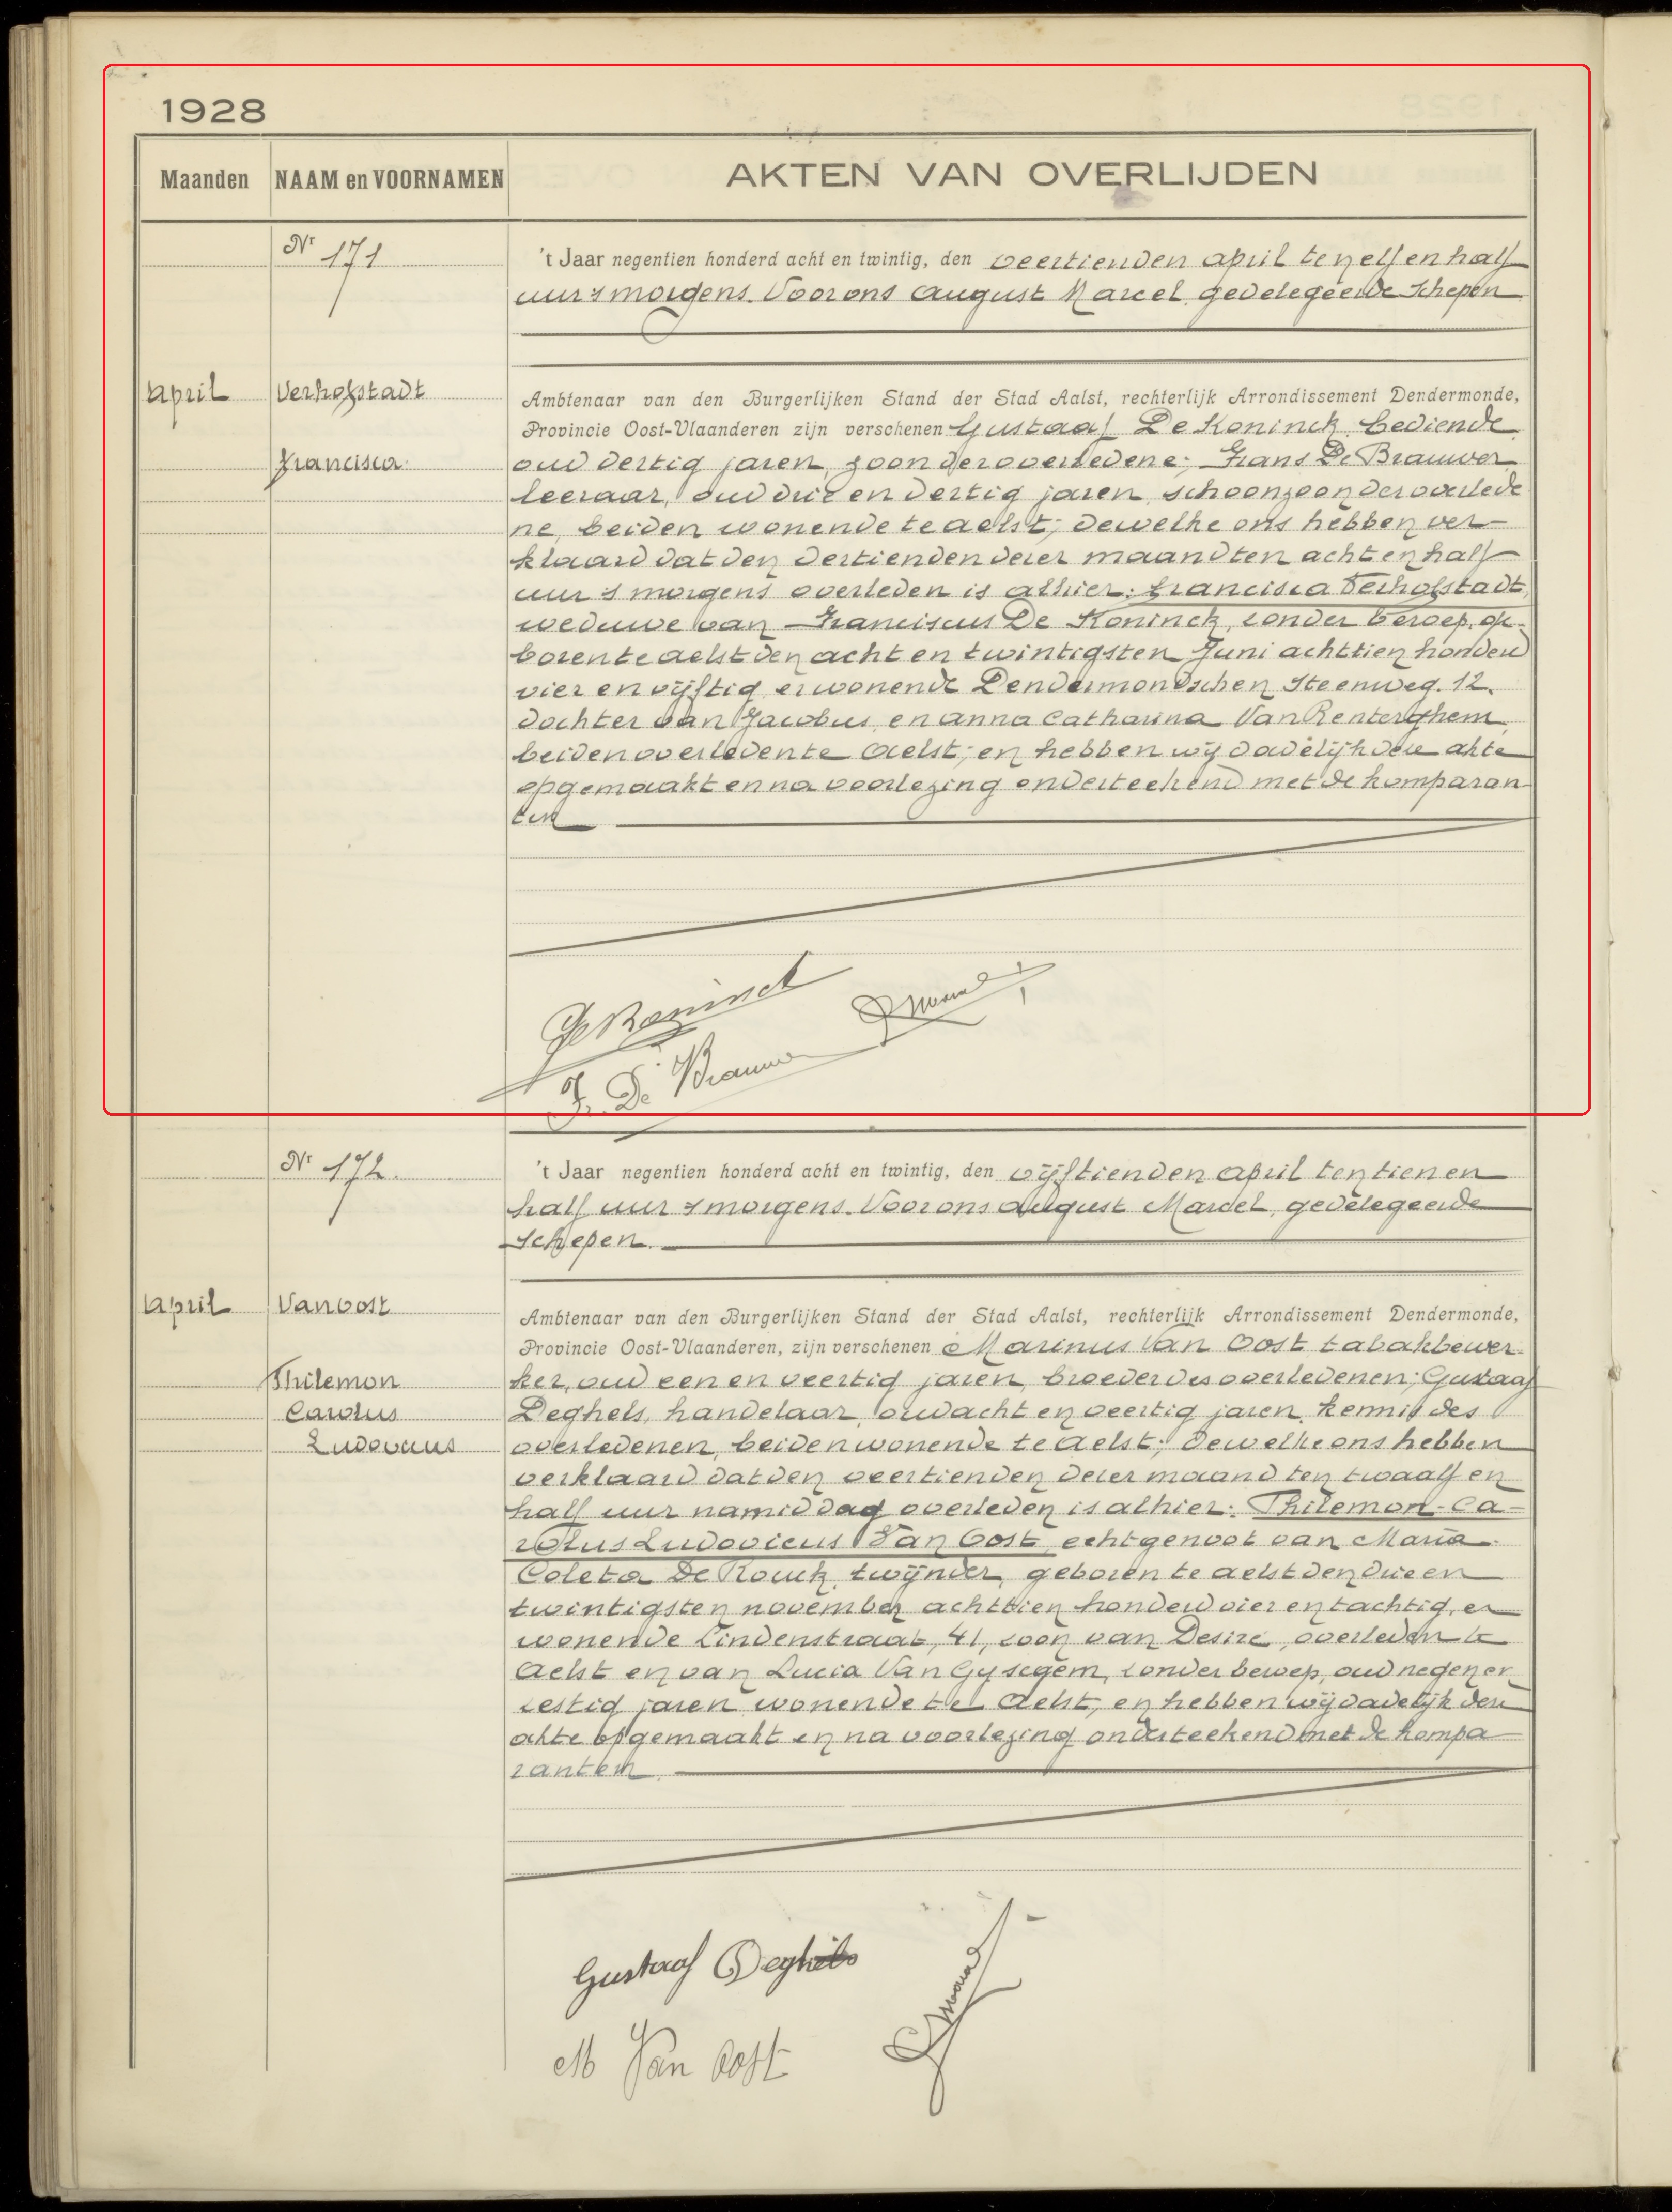 1928
Maanden NAAM en VOORNAMEN AKTEN VAN OVERLIJDEN
Nr 171
't Jaar negentien honderd acht en twintig, den veertienden april ten elf en half
uur s morgens. Voor ons August Marcel, gedelegeerde Schepen
April Verhofstadt
Francisca
Ambtenaar van den Burgerlijken Stand der Stad Aalst, rechterlijk Arrondissement Dendermonde,
Provincie Oost-Vlaanderen zijn verschenen Gustaaf De Koninck, bediende
oud dertig jaren, zoon der overledene; Frans De Brauwer
leeraar, oud drie en dertig jaren, schoonzoon der overlede
ne, beiden wonende te Aelst; dewelke ons hebben ver-
klaard dat den dertienden dezer maand ten acht en half
uur s morgens overleden is alhier: Francisca Verhofstadt,
weduwe van Franciscus De Koninck, zonder beroep, ge-
boren te Aelst den acht en twintigsten Juni achttien honderd
vier en vijftig, er wonende Dendermondschen Steenweg. 12.
dochter van Jacobus, en Anna Catharina Van Renterghem,
beiden overleden te Aelst; en hebben wij dadelijk deze akte
opgemaakt en na voorlezing onderteekend met de komparan
ten
De Koninck
Fr. De Brauwer
Nr 172.
't Jaar negentien honderd acht en twintig, den vijftienden april ten tien en
half uur s morgens. Voor ons August Marcel, gedelegeerde
Schepen.
April Van Oost
Philemon
Carolus
Ludovicus
Ambtenaar van den Burgerlijken Stand der Stad Aalst, rechterlijk Arrondissement Dendermonde,
Provincie Oost-Vlaanderen, zijn verschenen Marinus Van Oost tabakbewer-
ker, oud een en veertig jaren, broeder des overledenen; Gustaaf
Deghels, handelaar, oud acht en veertig jaren, kennis des
overledenen, beiden wonende te Aelst; dewelke ons hebben
verklaard dat den veertienden dezer maand ten twaalf en
half uur namiddag overleden is alhier: Philemon-Ca-
rolus Ludovicus Van Oost echtgenoot van Maria
Coleta De Rouck, twijnder, geboren te Aelst den drie en
twintigsten november achttien honderd vier en tachtig, er
wonende Lindenstraat, 41, zoon van Desiré, overleden te
Aelst en van Lucia Van Gysegem, zonder beroep, oud negen en
zestig jaren wonende te Aelst, en hebben wij dadelijk deze
akte opgemaakt en na voorlezing onderteekend met de kompa
ranten
Gustaaf Deghels
M Van Oost